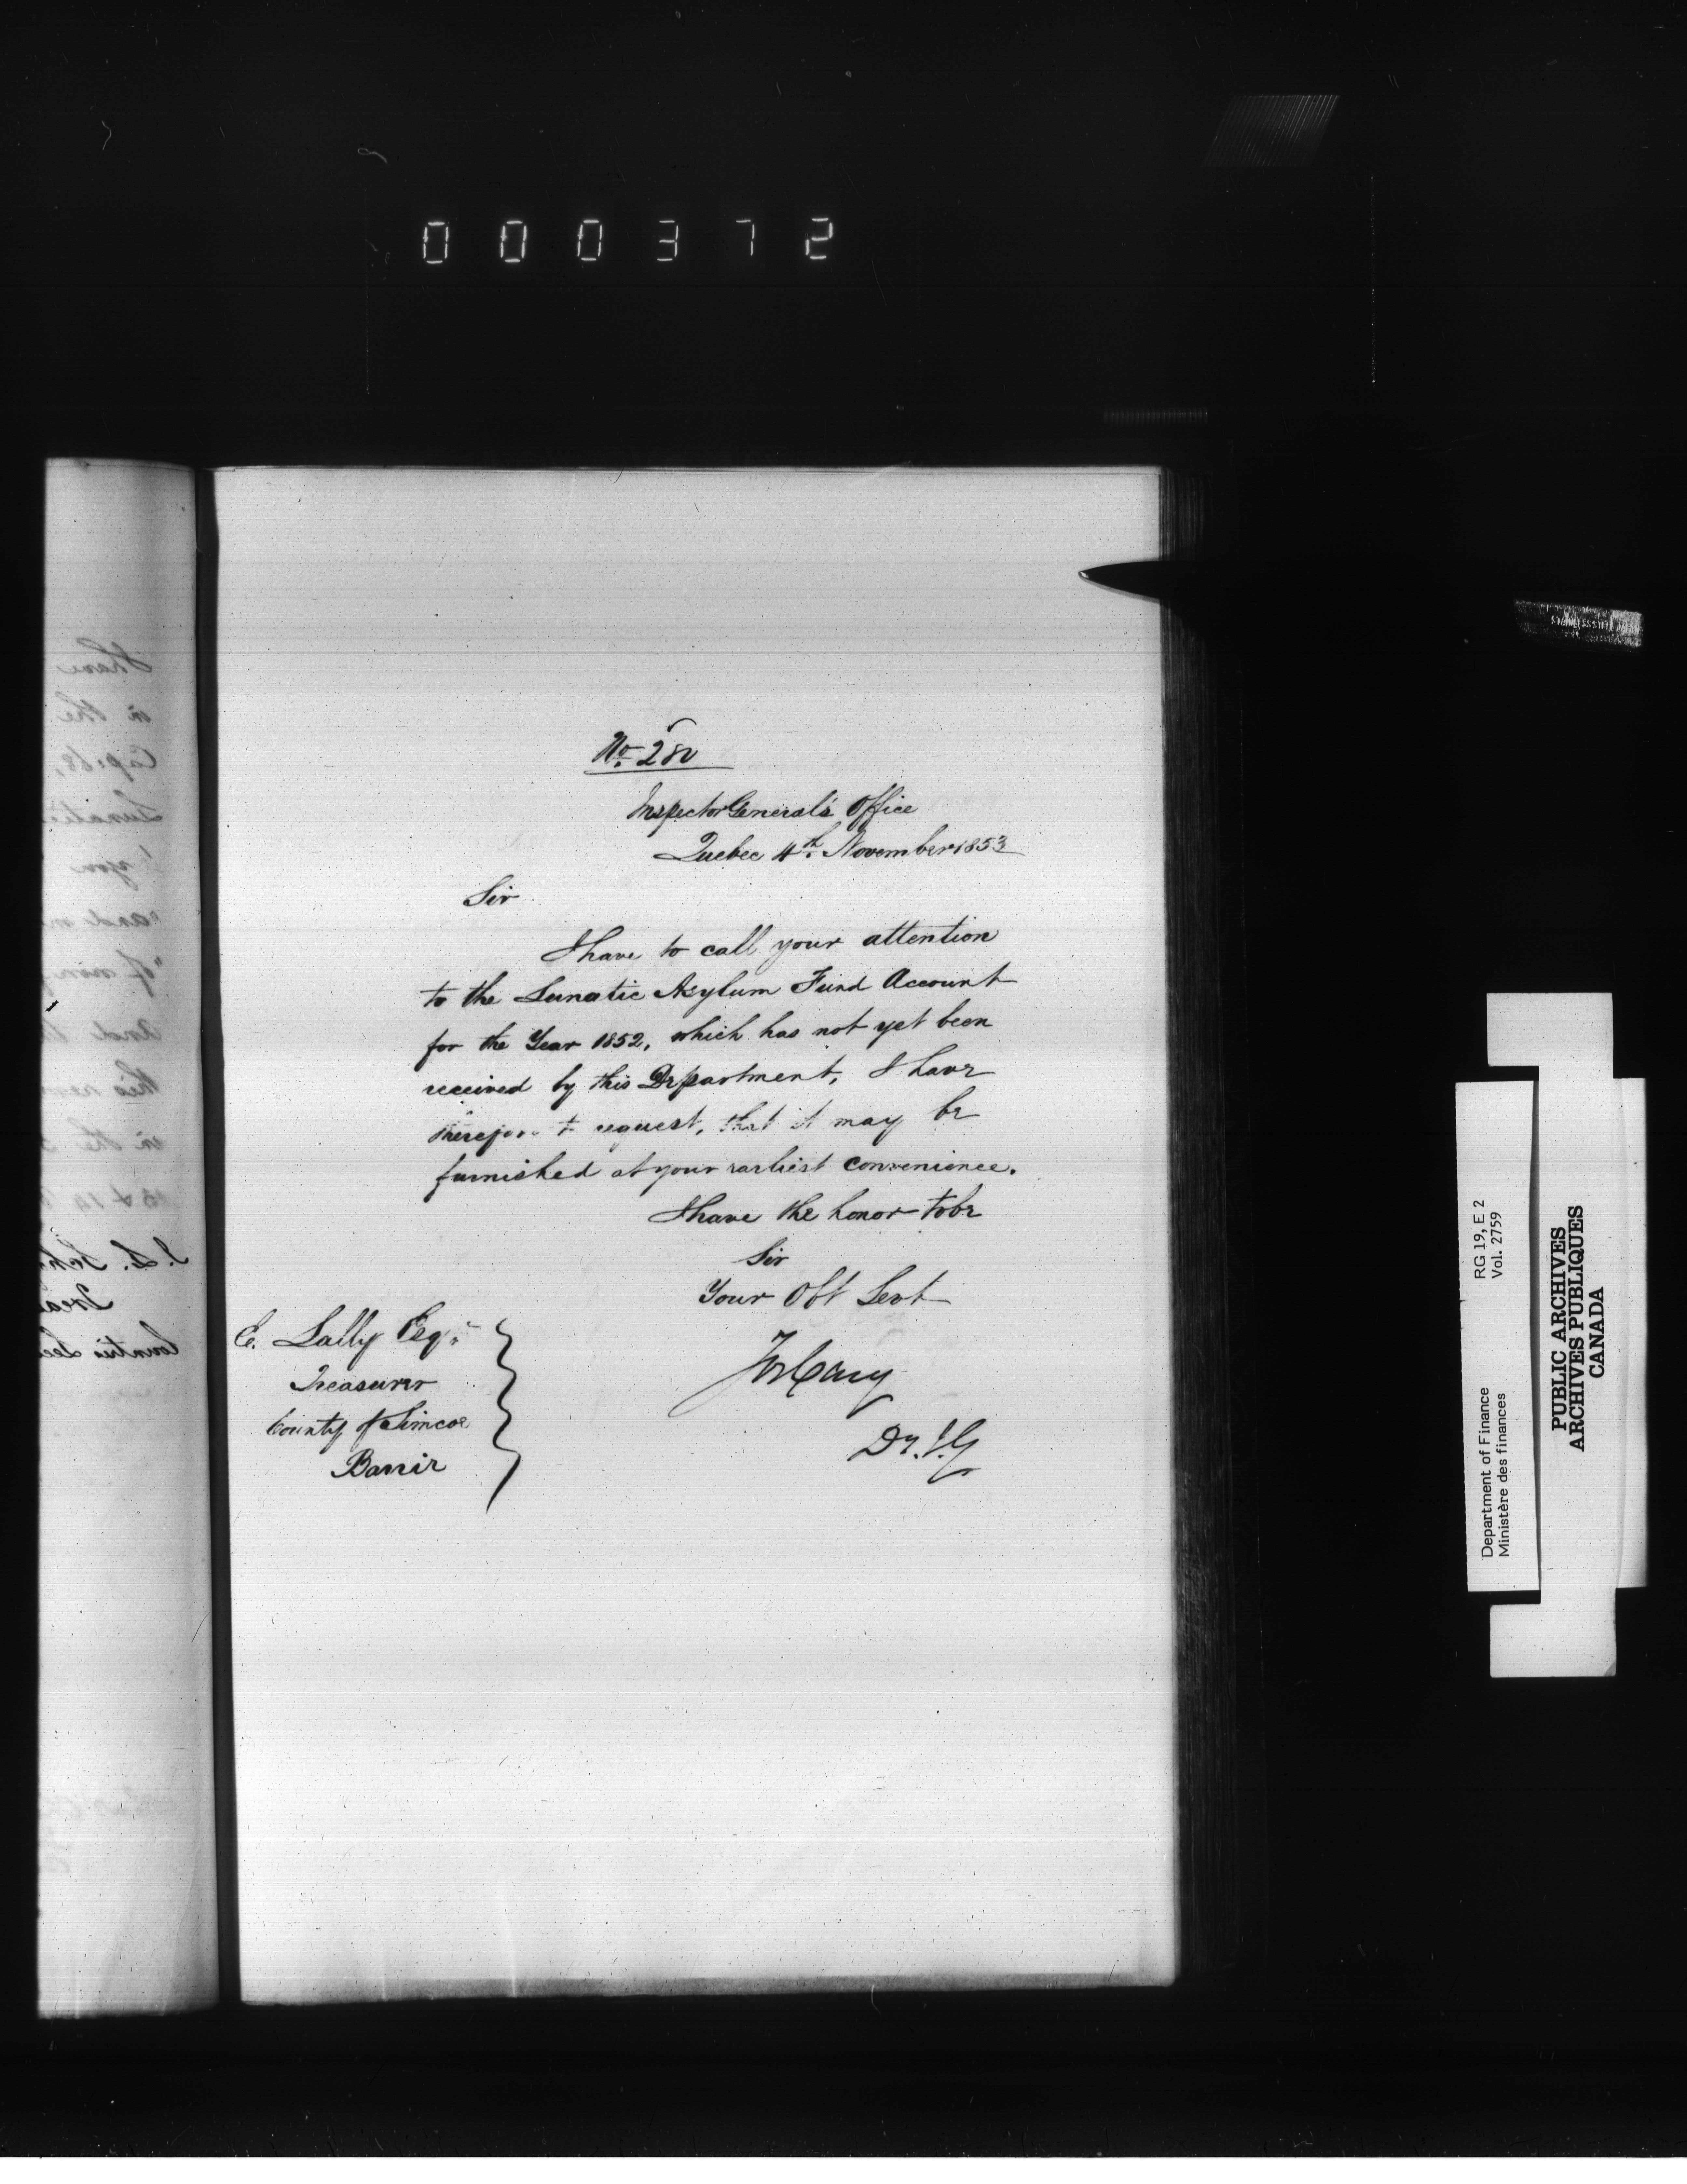 000372
No. 280
Inspector General's Office
Quebec 4th. November 1853
Sir
I have to call your attention
to the Lunatic Asylum Fund Account
for the Year 1852, which has not yet been
received by this Department, I have
therefore to request, that it may be
furnished at your earliest convenience.
I have the honor to be
Sir
Your Obt Servt
Jos Cary
Dy. I. G
E. Lally Esqr.
Treasurer
County of Simcoe
Barrie
RG 19, E 2
Vol. 2759
Department of Finance
Ministère des finances
PUBLIC ARCHIVES
ARCHIVES PUBLIQUES
CANADA